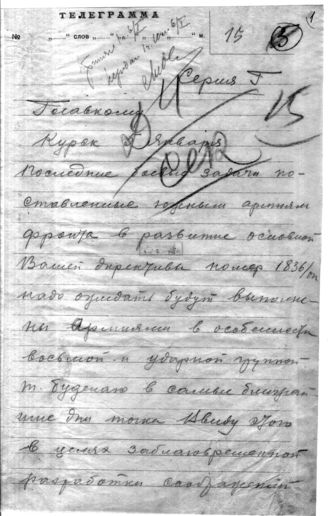 1
ТЕЛЕГРАММА
№ „ " слов „ " м.
15
Серия Г
Главкому 15
Курск Января
Последние боевые задачи по-
ставленные южным армиям
фронта в развитие основной
Вашей директивы номер 1836/оп
надо ожидать будут выполне-
ны Армиями в особенности
восьмой и ударной группой
т. Буденаго в самые ближай-
шие дни точка Ввиду этого
в целях заблаговременной
разработки соображений